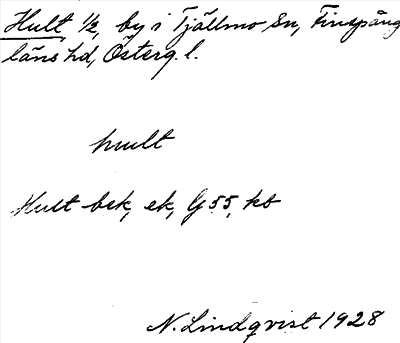 Hult ½, by i Tjällmo Sn, Finspång
läns hd, Österg. l.
hult
Hult bek, ek, G 55, ks
N. Lindqvist 1928